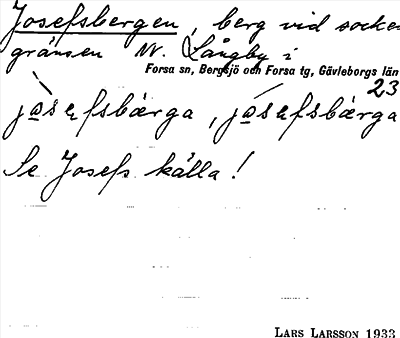 Josefsbergen, berg vid socke
gränsen N. Långby i
Forsa sn, Bergsjö och Forsa tg, Gävleborgs län
23
jo̲sefsbærga, jo̲sefsbærga
Se Josefs källa!
LARS LARSSON 1933